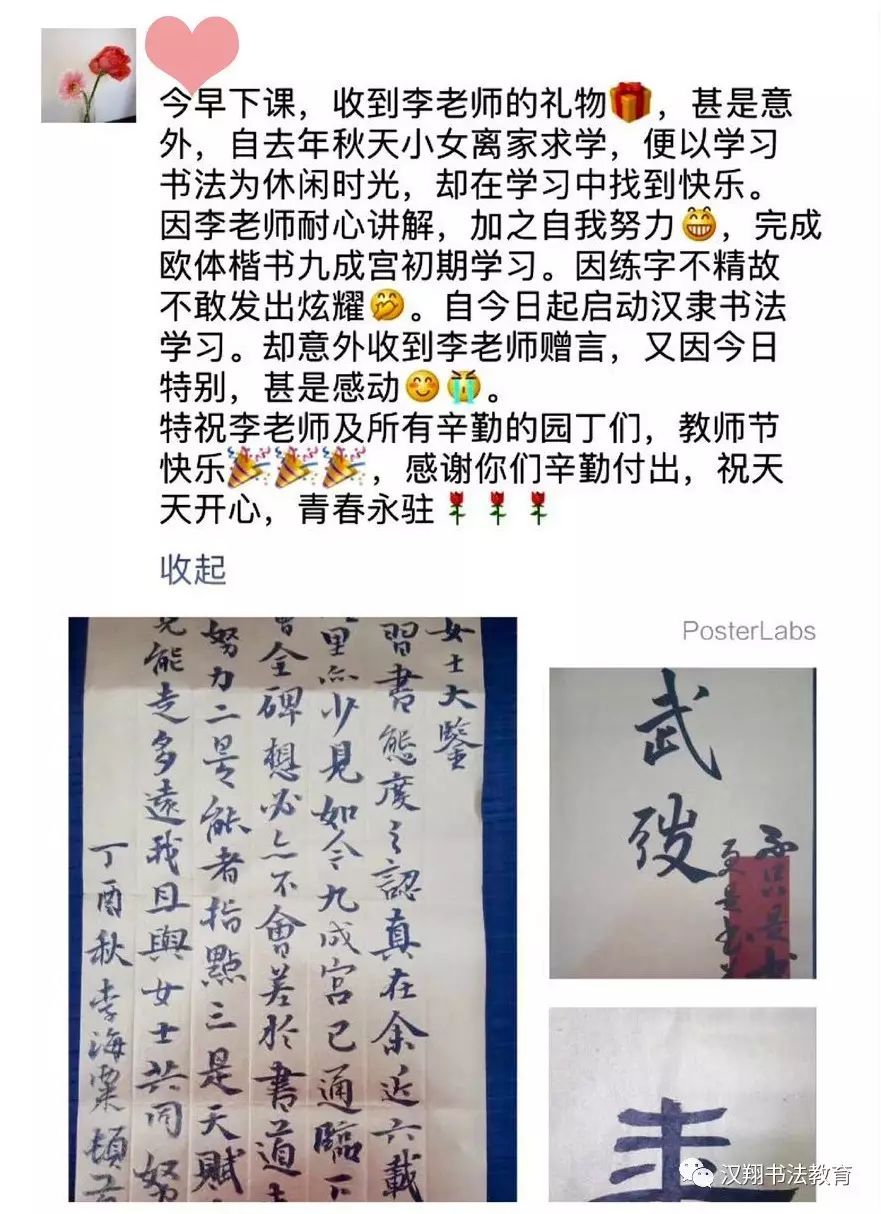 今早下课，收到李老师的礼物🎁，甚是意
外，自去年秋天小女离家求学，便以学习
书法为休闲时光，却在学习中找到快乐。
因李老师耐心讲解，加之自我努力😁，完成
欧体楷书九成宫初期学习。因练字不精故
不敢发出炫耀🤭。自今日起启动汉隶书法
学习。却意外收到李老师赠言，又因今日
特别，甚是感动😊😭。
特祝李老师及所有辛勤的园丁们，教师节
快乐🎉🎉🎉，感谢你们辛勤付出，祝天
天开心，青春永驻🌹🌹🌹
收起
PosterLabs
女士大鑒
習書態度之認真在余近六載
里亦少見如今九成宮已通臨下
全碑想必亦不會差於書道
努力二是能者指點三是天賦
能走多遠我且與女士共同努
丁酉秋李海粟頓
武
弢
汉翔书法教育